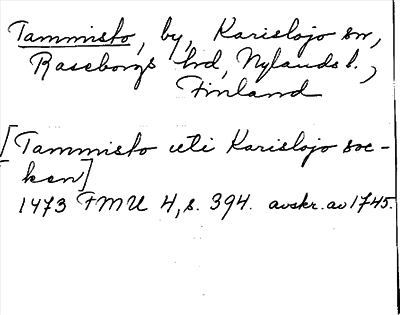 Tammisto, by, Karislojo sn,
Raseborgs hd, Nylands l.,
Finland
[Tammisto uti Karislojo soc-
ken]
1473 FMU 4, s. 394. avskr. av 1745.